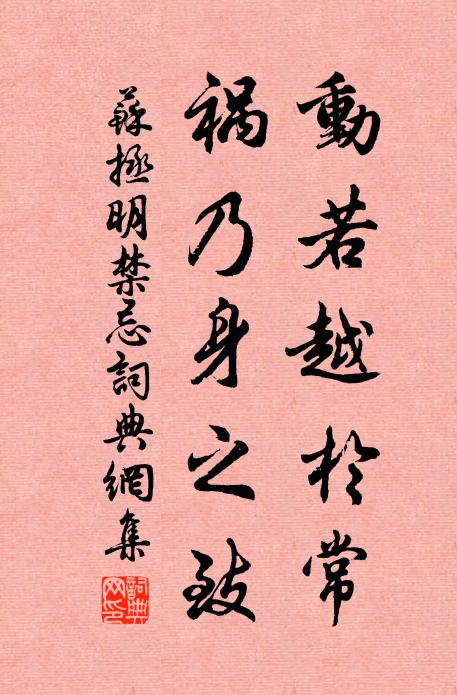 動若越於常
禍乃身之致
蘇拯明禁忌詞典網集
詞典网印